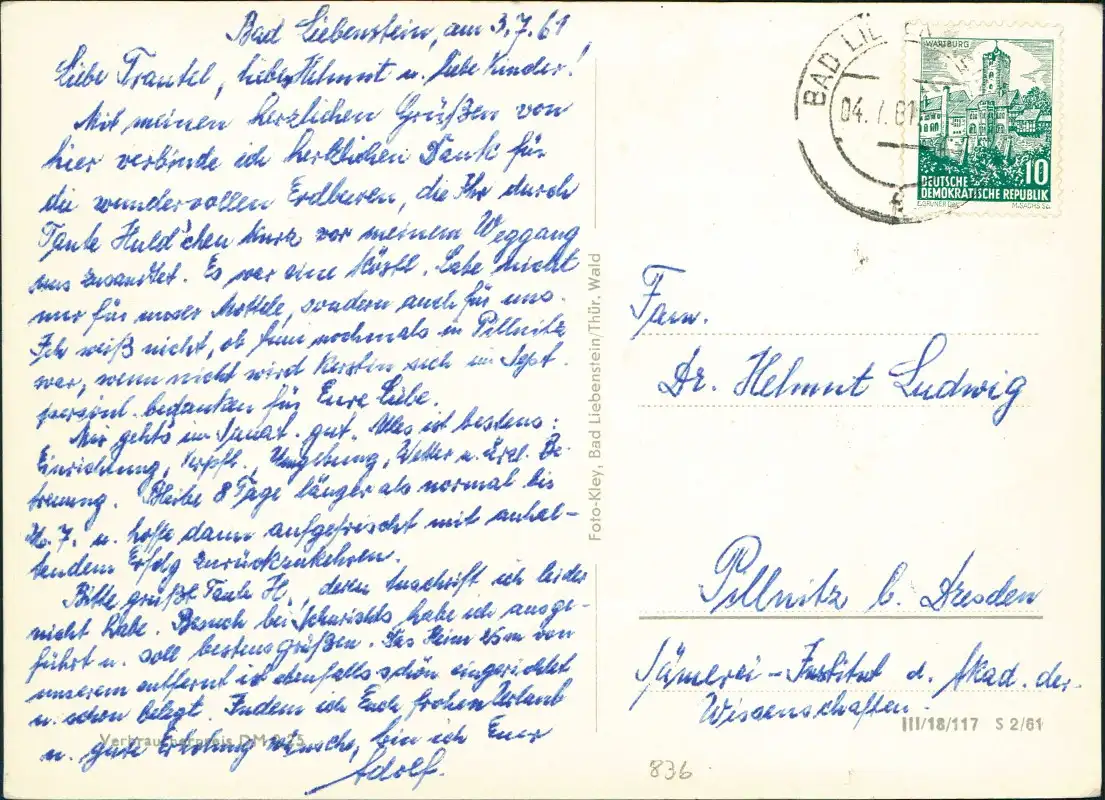 Bad Liebenstein, am 3.7.61
Liebe Trautel, lieber Helmut u. liebe Kinder!
Mit meinen herzlichen Grüßen von
hier verbinde ich herzlichen Dank für
die wundervollen Erdbeeren, die Ihr durch
Tante Huld'chen kurz vor meinem Weggang
uns zusandtet. Es war eine köstl. Labe nicht
nur für unser Mottele, sondern auch für uns.
Ich weiß nicht, ob nochmals in Pillnitz
war, wenn nicht wird Kerstin sich im Sept.
persönl. bedanken für Eure Liebe.
Mir gehts im Sanat. gut. Alles ist bestens:
Einrichtung, Verpfl., Umgebung, Wetter u. ärztl. Be-
treuung. Bleibe 8 Tage länger als normal bis
7. u. hoffe dann aufgefrischt mit anhal-
tendem Erfolg zurückzukehren.
Bitte grüßt Tante H., deren Anschrift ich leider
nicht habe. Besuch bei habe ich ausge-
führt u. soll bestens grüßen. Das Heim 25 m von
unserem entfernt ist ebenfalls schön eingerichtet
u. schon belegt. Indem ich Euch frohen Urlaub
u. gute Erholung wünsche, bin ich Euer
Adolf.
Verbraucherpreis DM 0,25
Foto-Kley, Bad Liebenstein/Thür. Wald
BAD LIEBEN
04.7.61
WARTBURG
10
DEUTSCHE
DEMOKRATISCHE REPUBLIK
E.GRUNER DEL. M.SACHS SC.
Fam.
Dr. Helmut Ludwig
Pillnitz b. Dresden
Sämerei-Institut d. Akad. der
Wissenschaften.
III/18/117 S 2/61
836